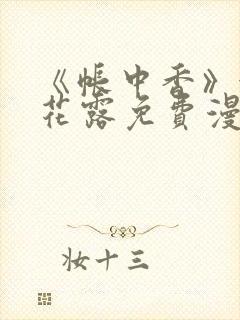 《帐中香》
花露免费漫
妆十三